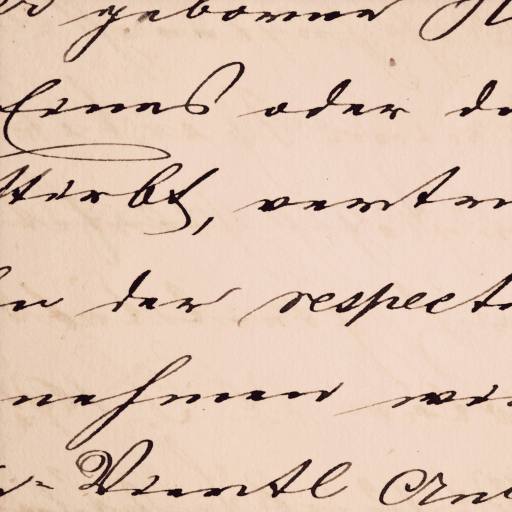 geborene
Eines oder
stirbt, vertr
der respect
nehmen
Viertl